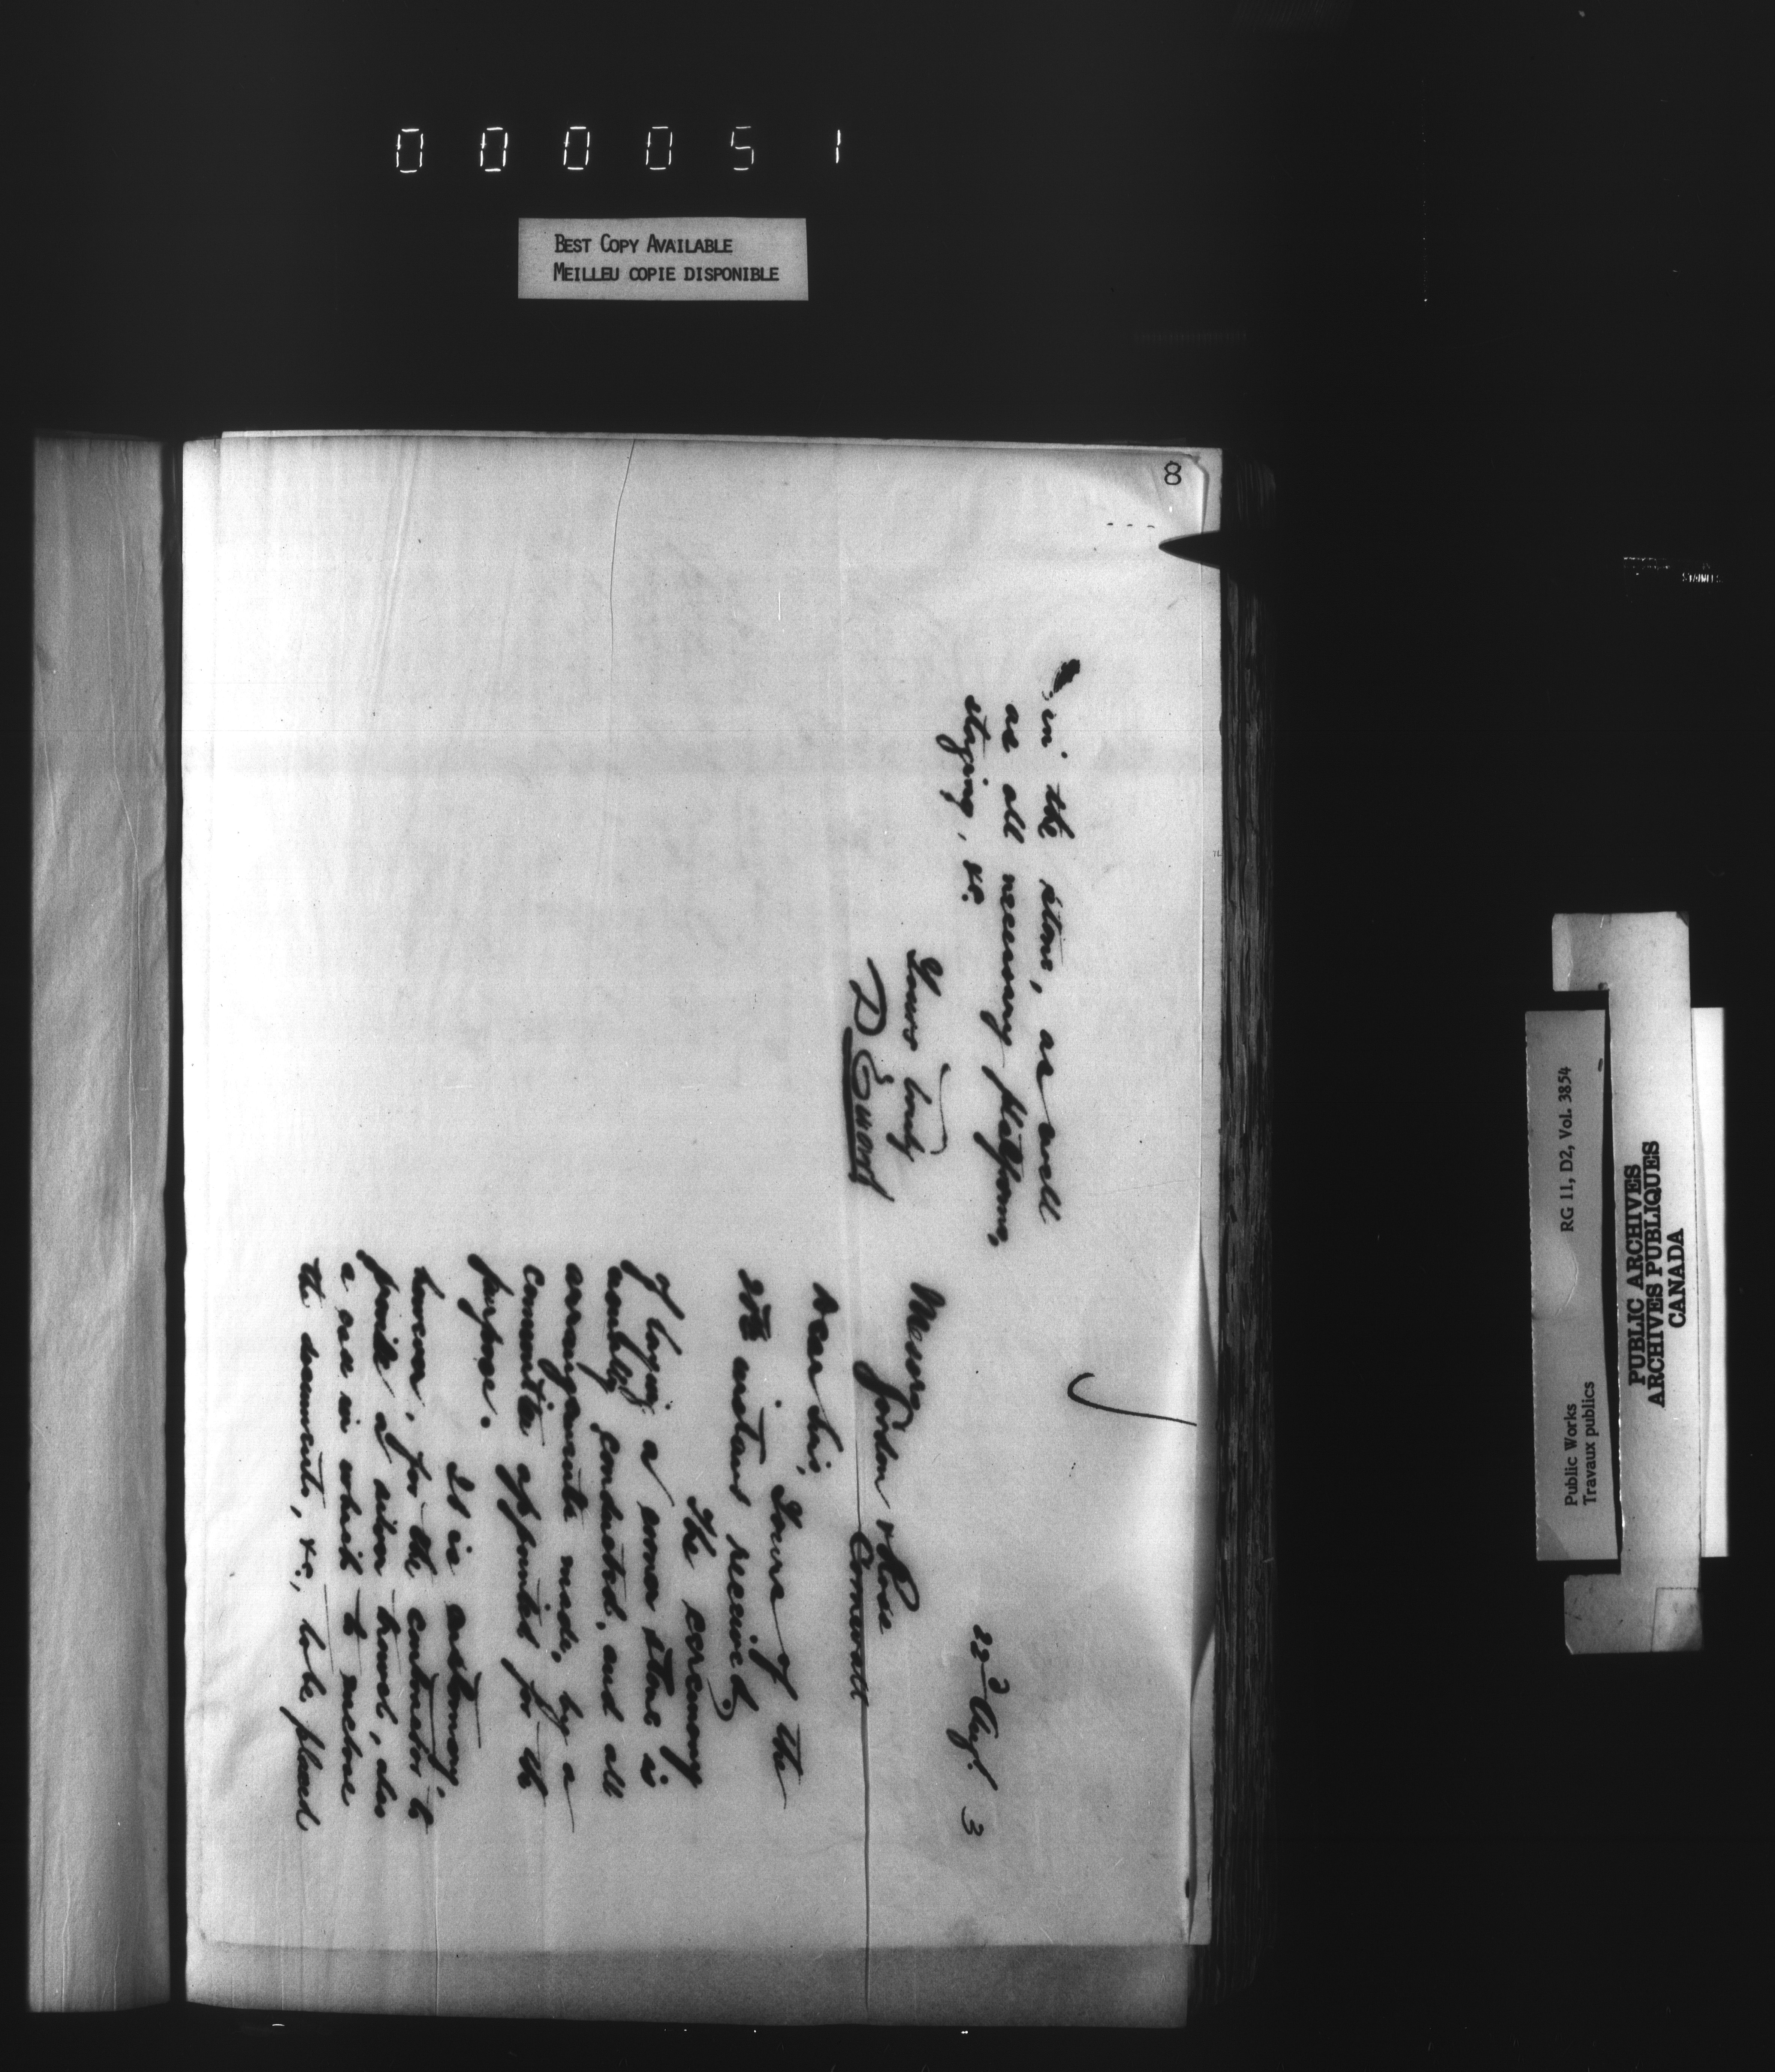 000051
BEST COPY AVAILABLE
MEILLEU COPIE DISPONIBLE
8
22d Augt. 3
Messrs
Gordon & Rose
Cornwall
Dear Sir,
Yours of the
20th instant received,
The ceremony
of laying a corner stone is
usually conducted, and all
arrangements made, by a
committee appointed for the
purpose.
It is customary,
however, for the contractor to
provide a silver trowel, also
a case in which to enclose
the documents, &c., to be placed
in the stone, as well
as all necessary platforms,
staging, &c.
Yours truly
D Ewart
Public Works
Travaux publics
RG 11, D2, Vol. 3854
PUBLIC ARCHIVES
ARCHIVES PUBLIQUES
CANADA